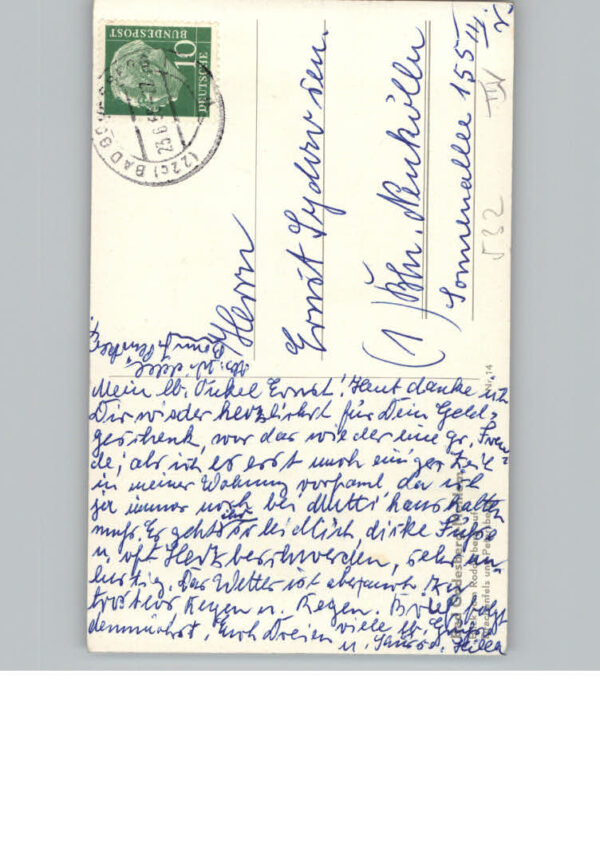 DEUTSCHE
BUNDESPOST
10
(22c) BAD GODESBERG
Herrn
Ernst Sydow sen.
(1) Bln. Neukölln
Sonnenallee 155 III
532
Mein lb. Onkel Ernst! Haut danke ich
Dir wieder herzlichst für Dein Geld-
geschenk, war das wieder eine gr. Freu-
de, als ich es erst nach einiger Zeit
in meiner Wohnung vorfand da ich
ja immer noch bei Mutti haushalten
muß. Es geht ihr so leidlich, dicke Füße
u. oft Herzbeschwerden, sehr un-
lustig. Das Wetter ist
trostlos Regen u. Regen. Brief folgt
demnächst. Euch Dreien viele lb. Grüße
u.
Bad Godesberg
Nr. 14